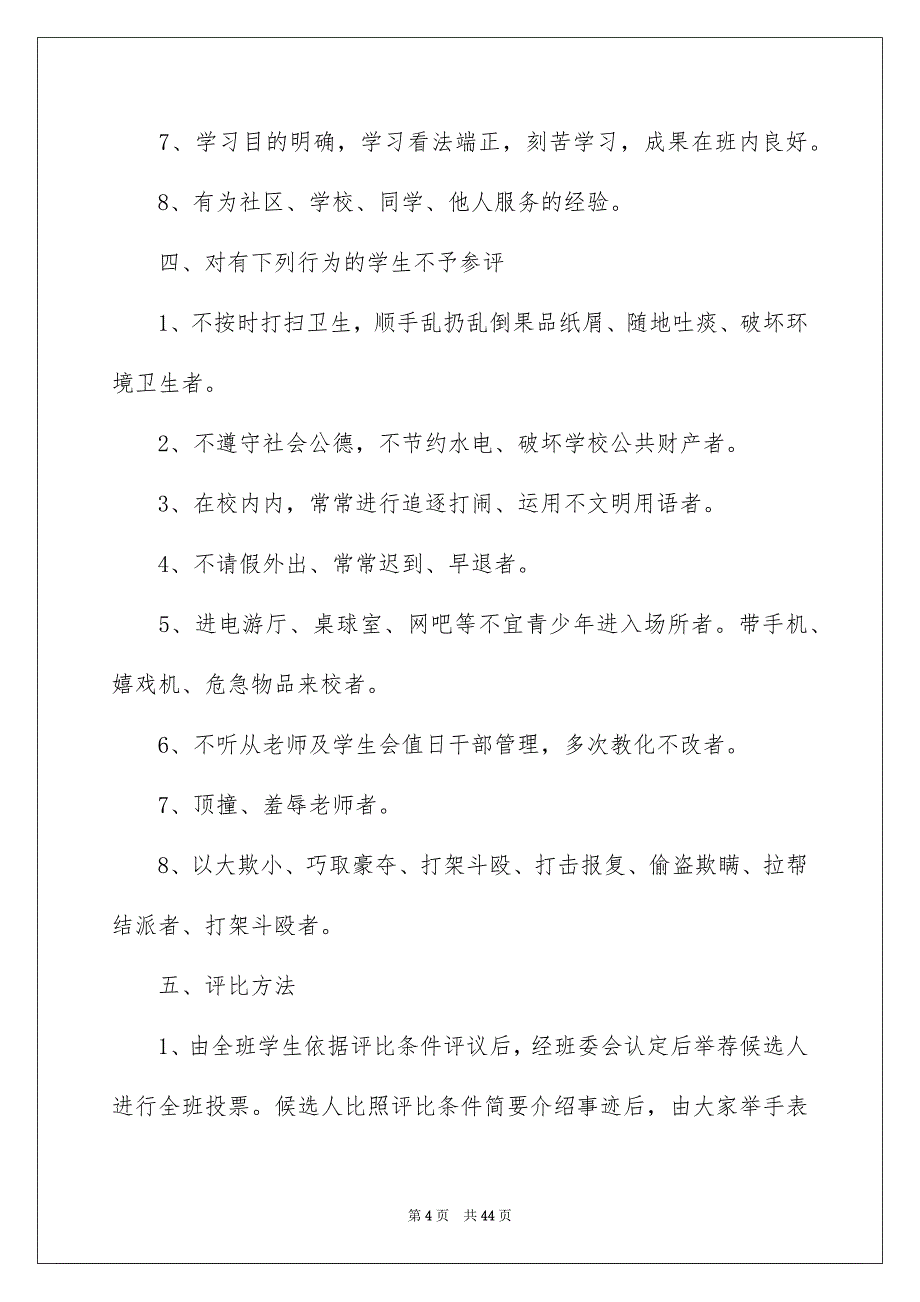 7、学习目的明确，学习看法端正，刻苦学习，成果在班内良好。
8、有为社区、学校、同学、他人服务的经验。
四、对有下列行为的学生不予参评
1、不按时打扫卫生，顺手乱扔乱倒果品纸屑、随地吐痰、破坏环
境卫生者。
2、不遵守社会公德，不节约水电、破坏学校公共财产者。
3、在校内内，常常进行追逐打闹、运用不文明用语者。
4、不请假外出、常常迟到、早退者。
5、进电游厅、桌球室、网吧等不宜青少年进入场所者。带手机、
嬉戏机、危急物品来校者。
6、不听从老师及学生会值日干部管理，多次教化不改者。
7、顶撞、羞辱老师者。
8、以大欺小、巧取豪夺、打架斗殴、打击报复、偷盗欺瞒、拉帮
结派者、打架斗殴者。
五、评比方法
1、由全班学生依据评比条件评议后，经班委会认定后举荐候选人
进行全班投票。候选人比照评比条件简要介绍事迹后，由大家举手表
第 4 页 共 44 页